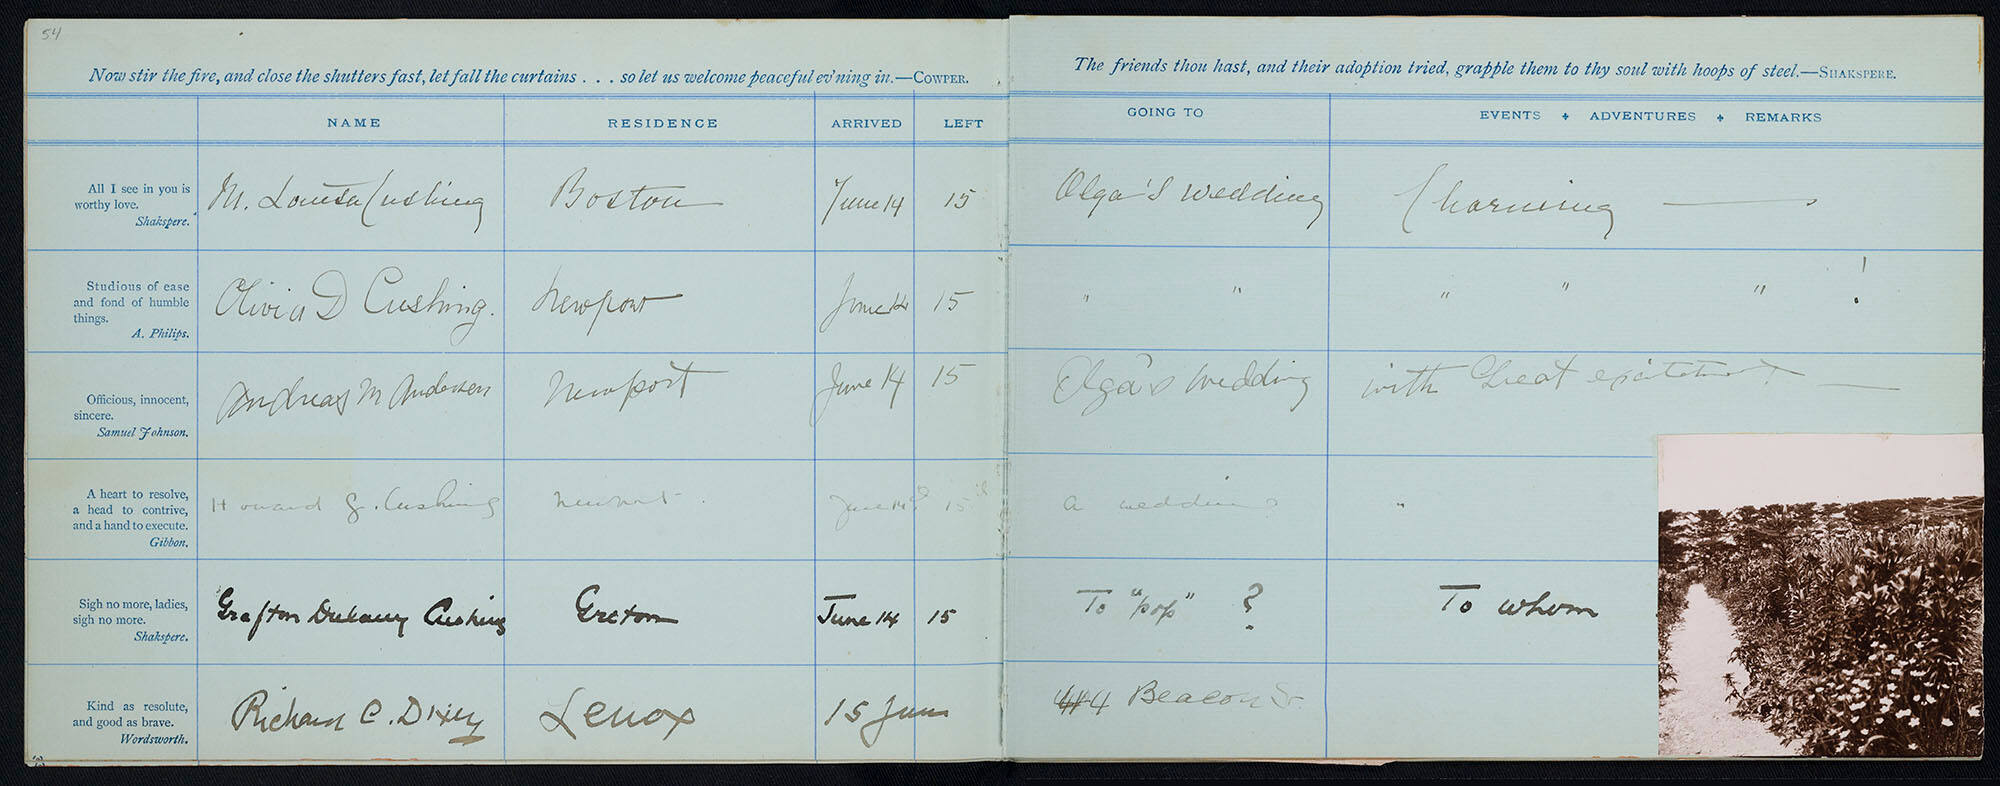 54
Now stir the fire, and close the shutters fast, let fall the curtains . . . so let us welcome peaceful ev'ning in.—COWPER.
The friends thou hast, and their adoption tried, grapple them to thy soul with hoops of steel.—SHAKSPERE.
NAME RESIDENCE ARRIVED LEFT GOING TO EVENTS ✦ ADVENTURES ✦ REMARKS
All I see in you is
worthy love.
Shakspere.
M. Louisa Cushing Boston June 14 15 Olga's wedding Charming —
Studious of ease
and fond of humble
things.
A. Philips.
Olivia D Cushing. Newport June 14 15 " " " " " !
Officious, innocent,
sincere.
Samuel Johnson.
Andreas M Andersen Newport June 14 15 Olga's Wedding with Great excitement —
A heart to resolve,
a head to contrive,
and a hand to execute.
Gibbon.
Howard G. Cushing Newport. June 14th 15th a wedding "
Sigh no more, ladies,
sigh no more.
Shakspere.
Grafton Dulany Cushing Groton June 14 15 To "pop" ? To whom
Kind as resolute,
and good as brave.
Wordsworth.
Richard C. Dixey Lenox 15 June Beacon St.